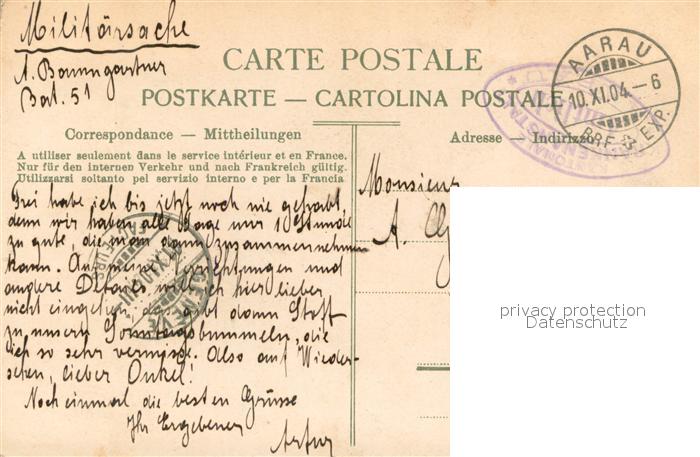 Militärsache
A. Baumgartner
Bat. 51
CARTE POSTALE
POSTKARTE — CARTOLINA POSTALE
AARAU
10.XI.04.–6
BRF. EXP.
Correspondance — Mittheilungen
Adresse — Indirizzo
A utiliser seulement dans le service intérieur et en France.
Nur für den internen Verkehr und nach Frankreich gültig.
Utilizzarsi soltanto pel servizio interno e per la Francia
Monsieur
A.
Frei habe ich bis jetzt noch nie gehabt,
denn wir haben alle Tage nur 1 Stunde
zu gute, die man dann zusammennehmen
kann. Auf meine Verrichtungen und
andere Details will ich hier lieber
nicht eingehen, das gibt dann Stoff
zu unsern Sonntagsbummeln, die
ich so sehr vermisse. Also auf Wieder-
sehen, lieber Onkel!
Noch einmal die besten Grüsse
Ihr Ergebener
Artur
GENÈVE
privacy protection
Datenschutz